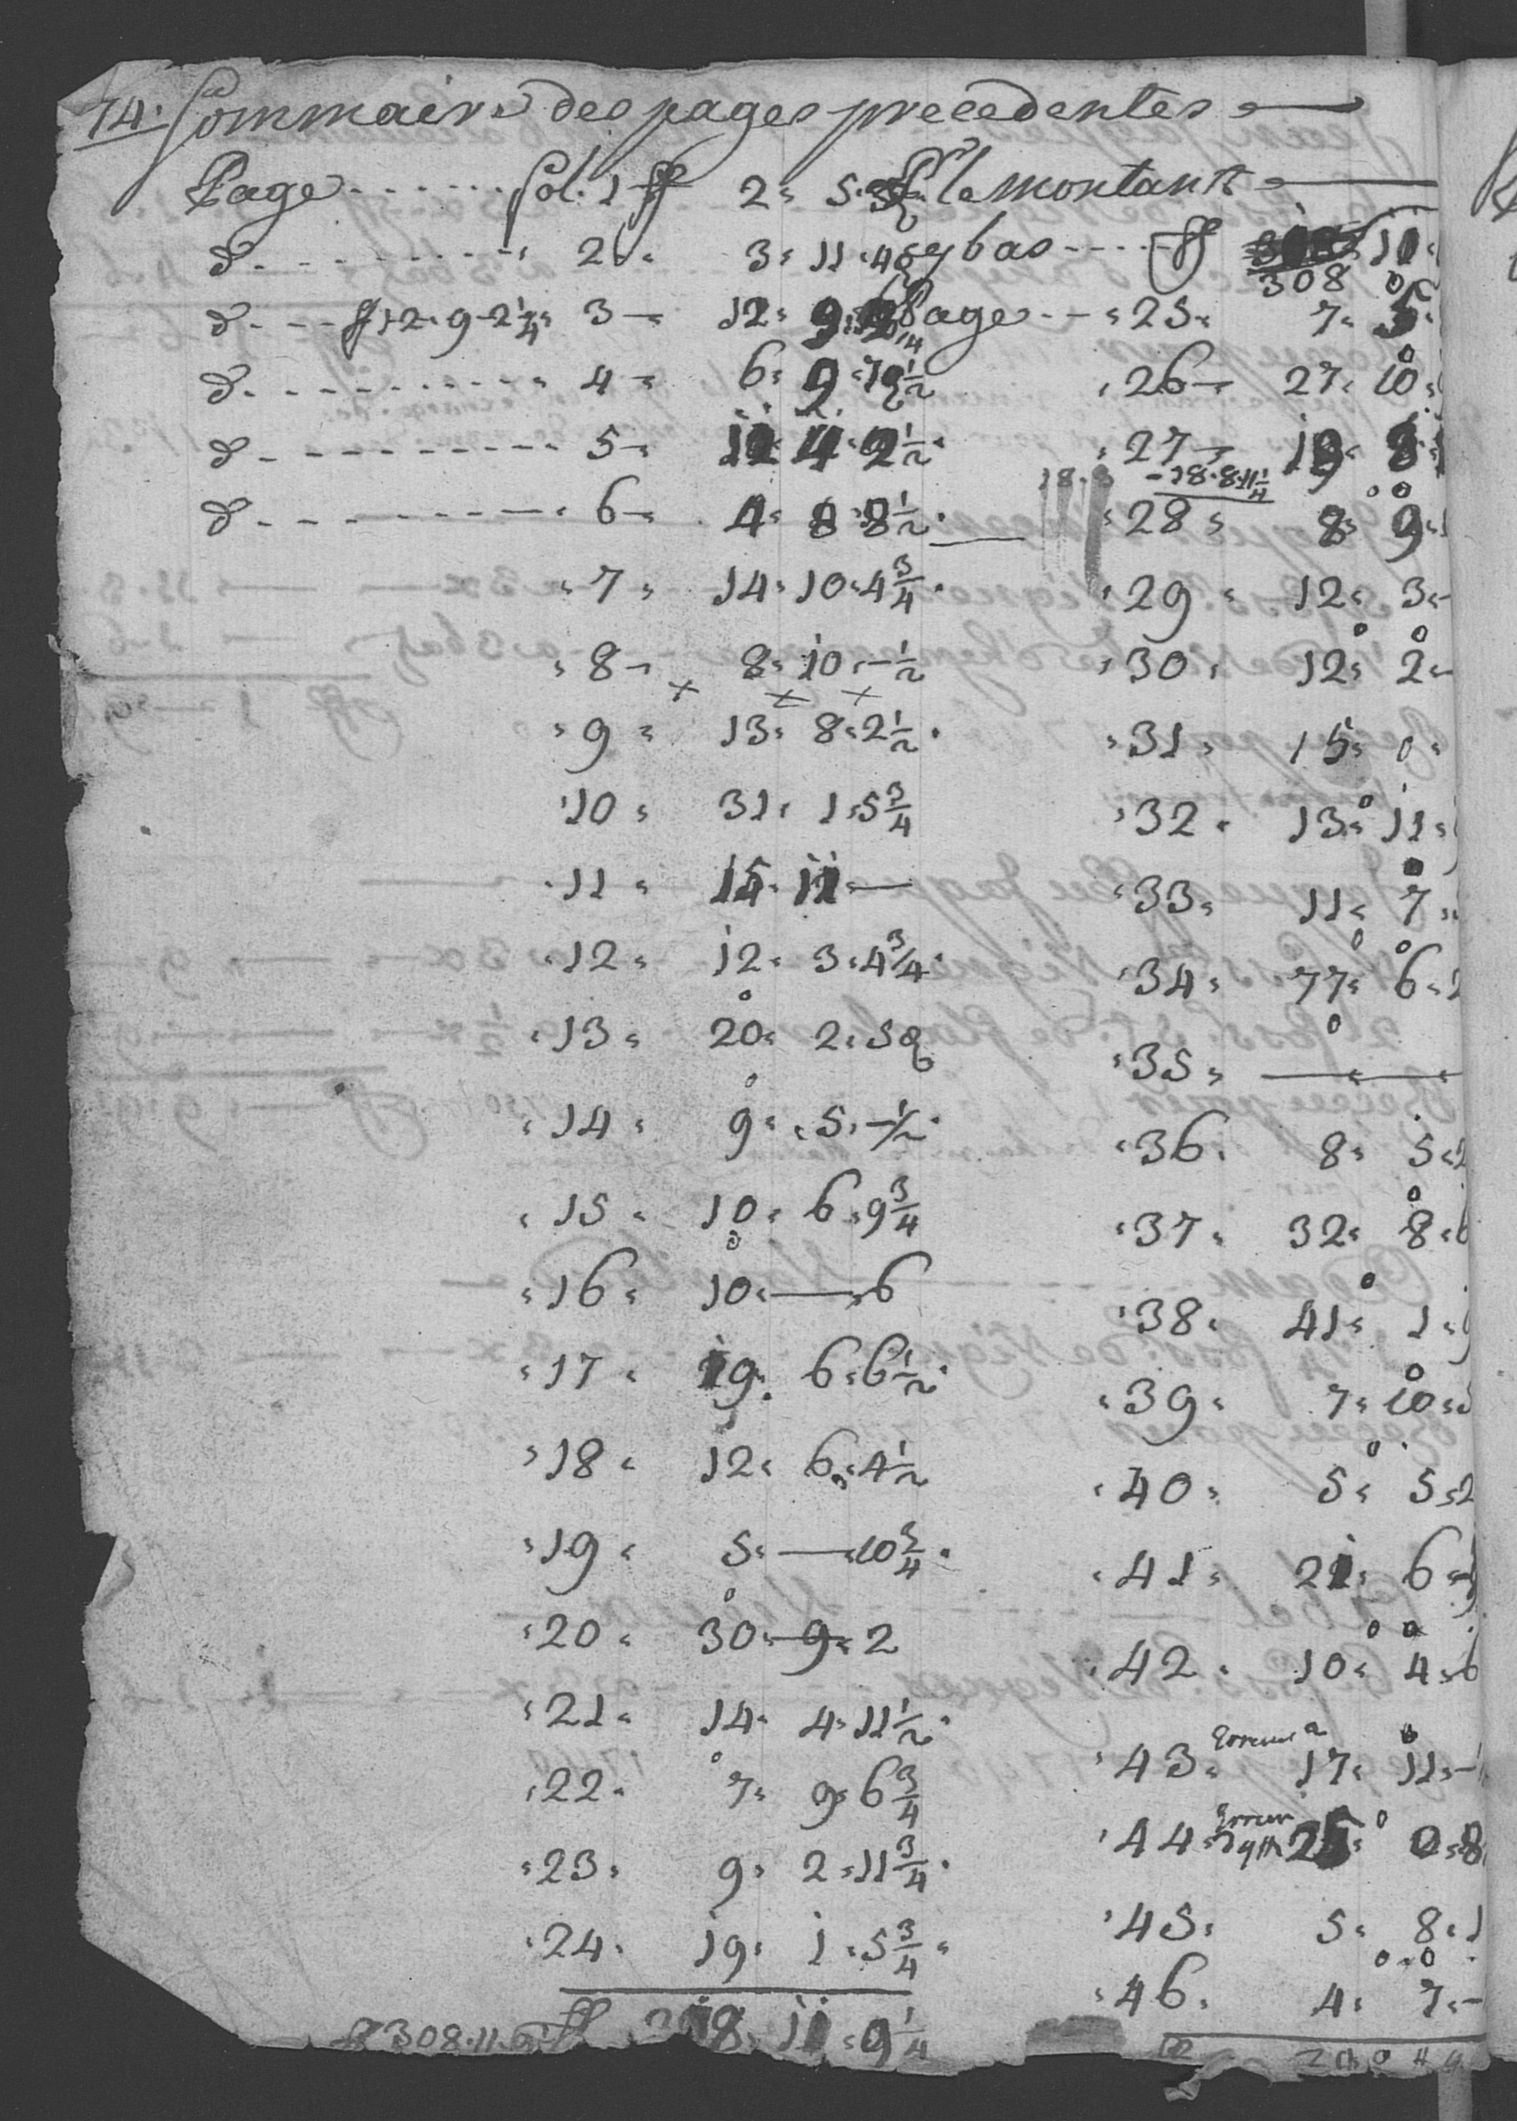 74. Sommaire des pages precedentes
Page ...... fol. 1 ff 2 5
d° ......... 2 3 11 4
d° ... ff 12 9 2 1/4 3 12 9
d° ......... 4 6 9 1/2
d° ......... 5 4 2 1/2
d° ......... 6 4 8 8 1/2
7 14 10 4 3/4
8 8 10 - 1/2
9 13 8 2 1/2
10 31 1 5 3/4
11 15 11 —
12 12 3 4 3/4
13 20 2 5
14 9 5 - 1/2
15 10 6 9 3/4
16 10 — 6
17 19 6 6 1/2
18 12 6 4 1/2
19 5 — 10 3/4
20 30 9 2
21 14 4 11 1/2
22 7 9 6 3/4
23 9 2 11 3/4
24 19 1 5 3/4
ff 308 11 9 ff 11 9 1/4
le montant
cy bas ..... ff 11
308
Page ... 25 7 5
26 27 10
27 19 8
18.8 - 18.8.11 1/4
28 8 9
29 12 3
30 12 2
31 15 0
32 13 11
33 11 7
34 77 6
35 —
36 8 5 2
37 32 8 6
38 41 1
39 7 10
40 5 5 2
41 21 6
42 10 4 6
43 Erreur 17 11
44 Erreur 25 0 8
45 5 8 1
46 4 7 -